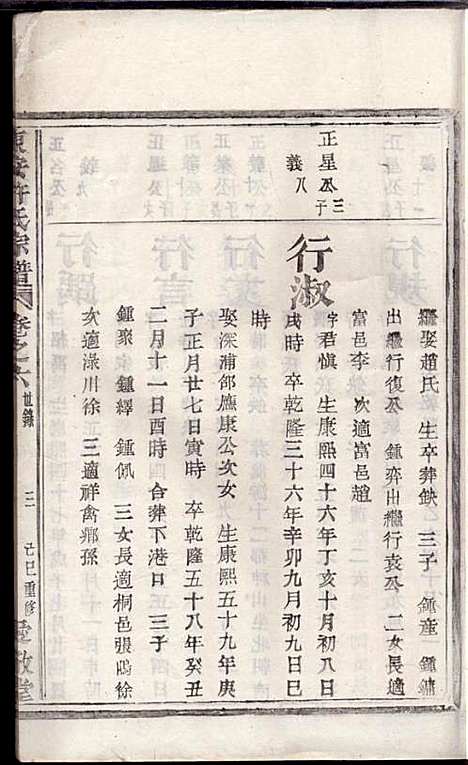 繼娶趙氏　生卒葬缺　三子　鍾產　鍾鏞
出繼行復公　鍾弈出繼行袁公　二女長適
富邑李　次適富邑趙
正星公三子
義八
行淑
字君慎　生康熙四十六年丁亥十月初八日
戌時　卒乾隆三十六年辛卯九月初九日巳
時
娶深浦邵應康公次女　生康熙五十九年庚
子正月廿七日寅時　卒乾隆五十八年癸丑
二月十一日酉時　合葬下港口　三子
鍾聚　鍾繹　鍾佩　三女長適桐邑張鳴徐
次適淥川徐　三適祥禽鄉孫
東安許氏宗譜
卷之六
世錄
三
己巳重修